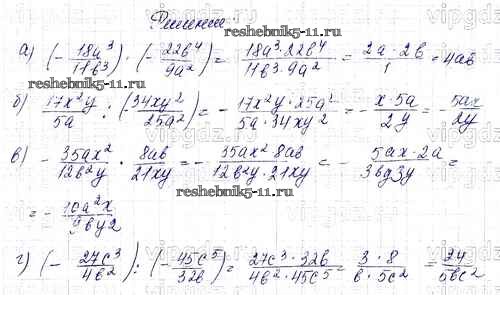 Решение
reshebnik5-11.ru
а) (- 18a³/11b³) · (- 22b⁴/9a²) = 18a³·22b⁴/11b³·9a² = 2a·2b/1 = 4ab
б) 17x²y/5a : (- 34xy²/25a²) = - 17x²y·25a²/5a·34xy² = - x·5a/2y = - 5ax/2y
в) - 35ax²/12b²y · 8ab/21xy = - 35ax²8ab/12b²y·21xy = - 5ax·2a/3bg3y =
reshebnik5-11.ru
= - 10a²x/9by2
г) (- 27c³/4b²) : (- 45c⁵/32b) = 27c³·32b/4b²·45c⁵ = 3·8/b·5c² = 24/5bc²
reshebnik5-11.ru
vipgdz.ru